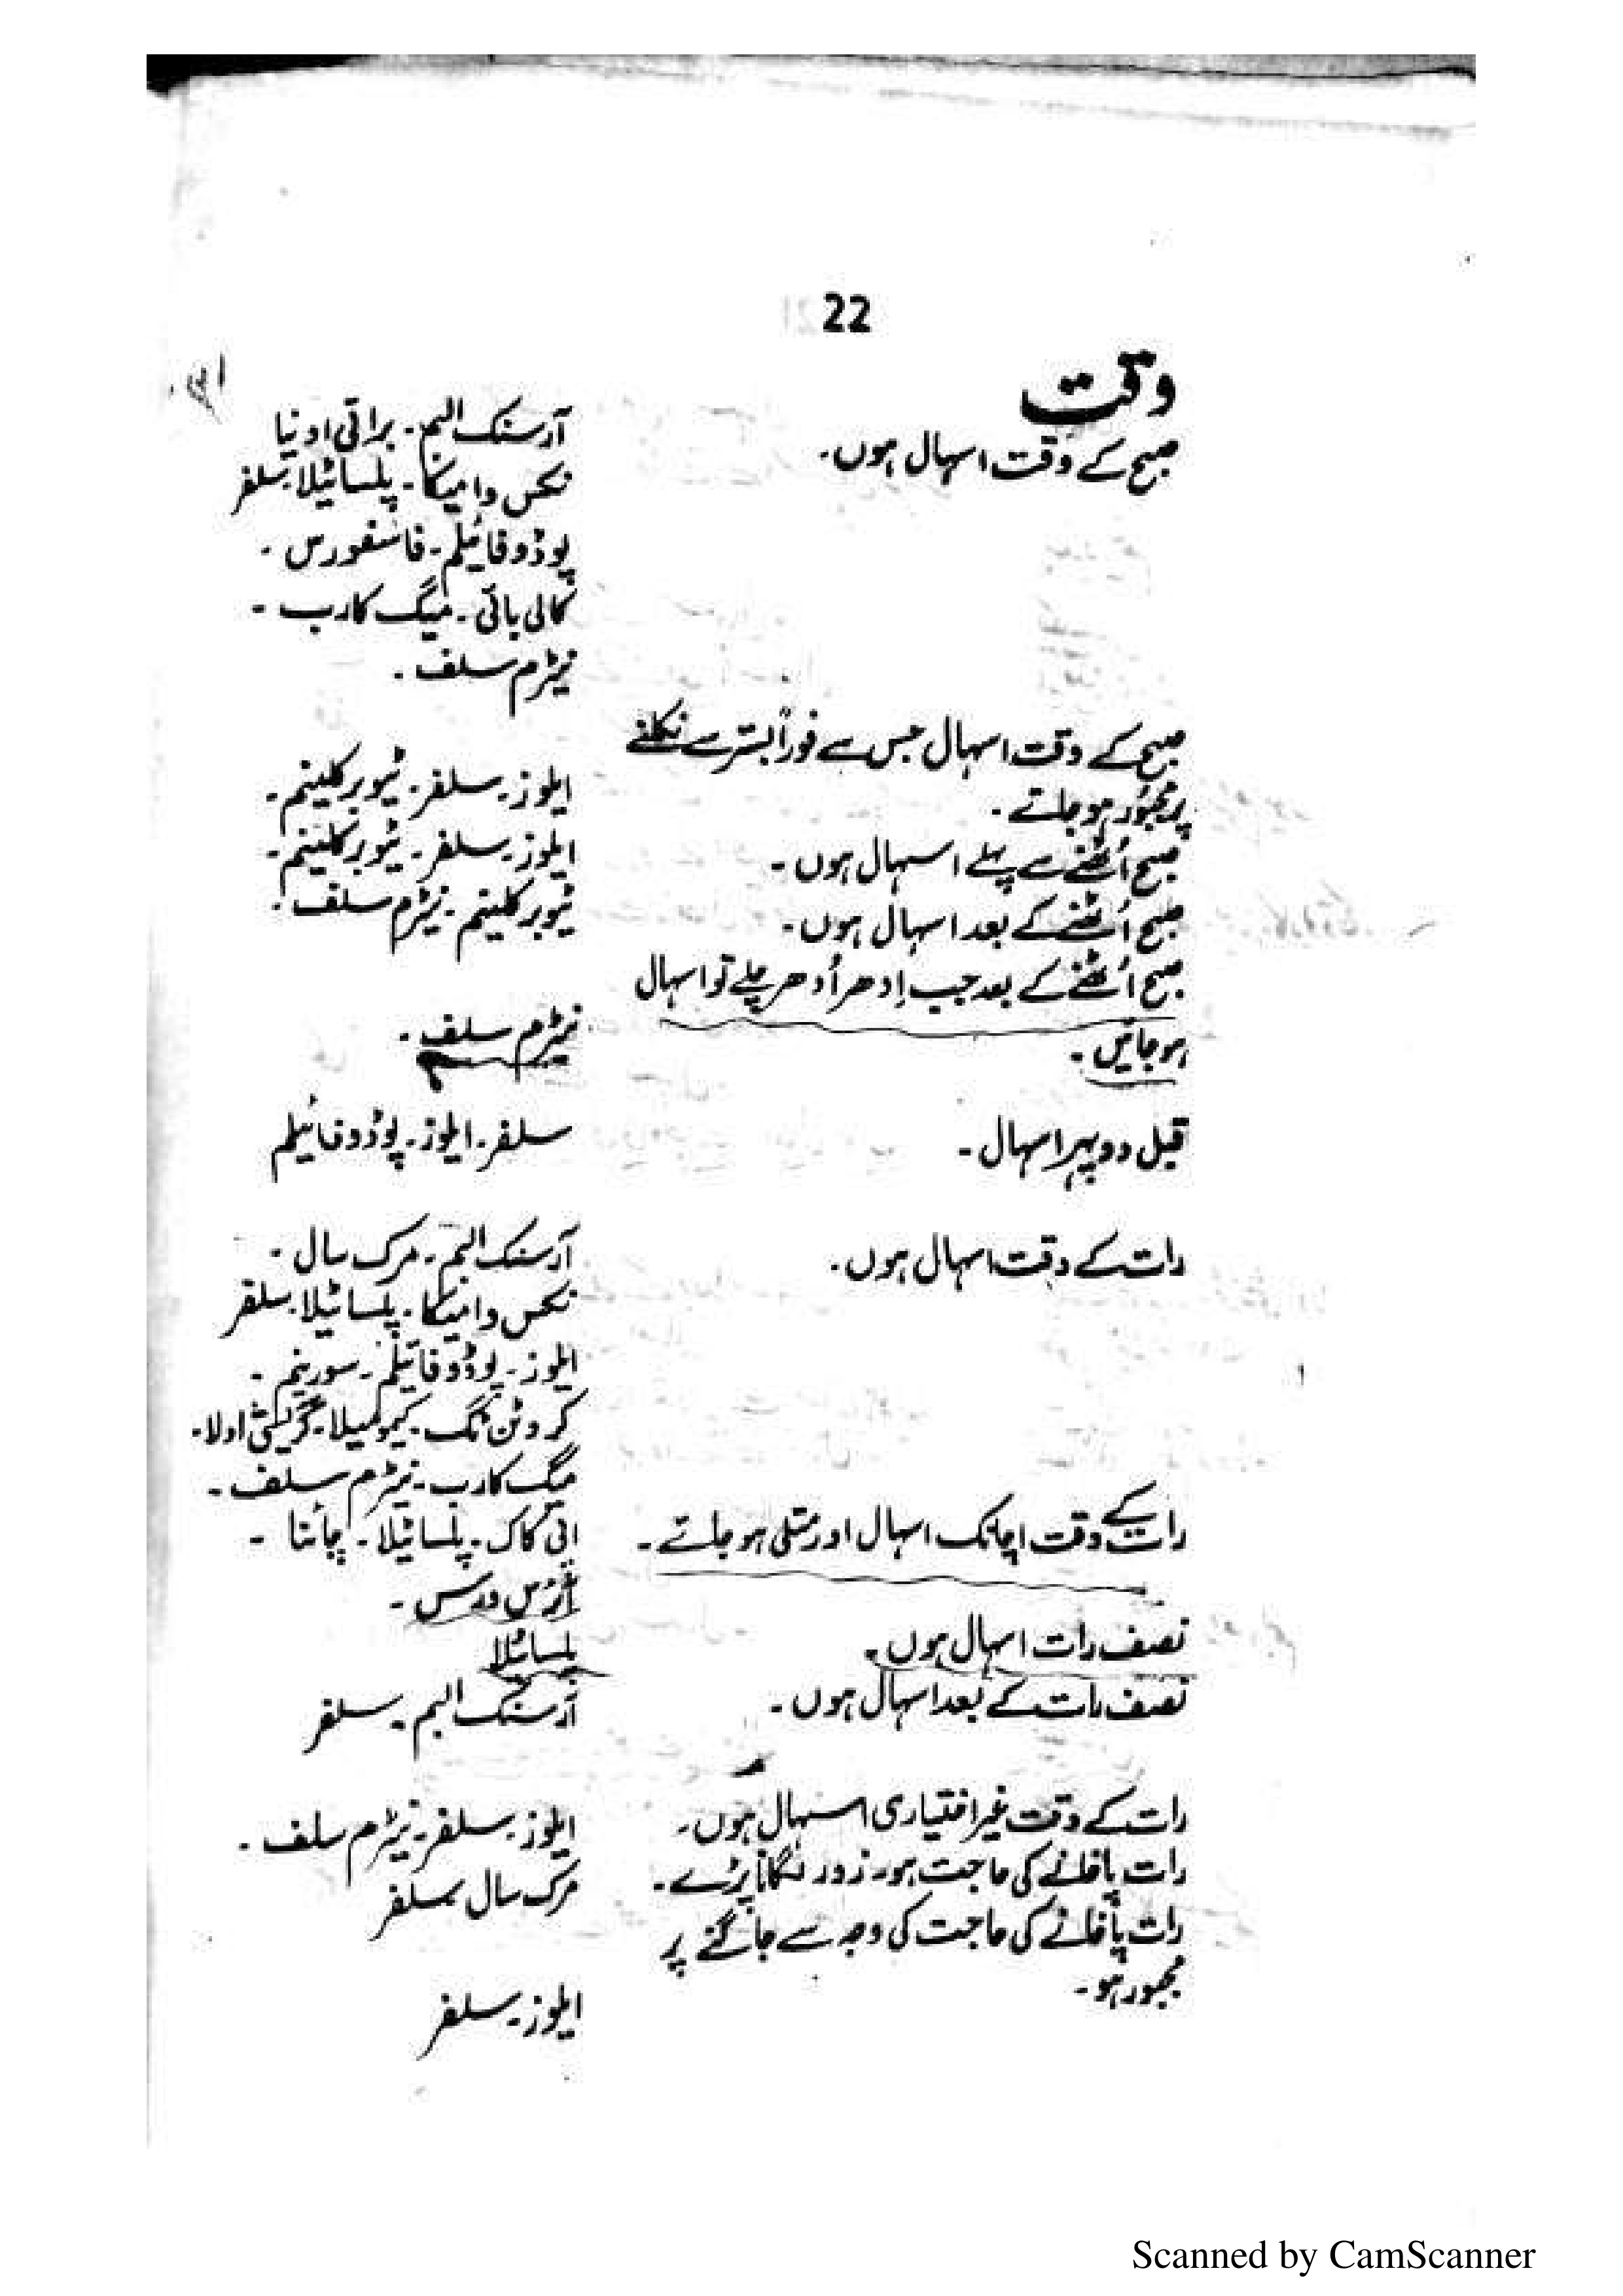 22
وقت
صبح کے وقت اسہال ہوں۔
آرسنک البم۔ برائی اونیا
نکس وامیکا۔ پلساٹیلا۔ سلفر
پوڈوفائیلم۔ فاسفورس۔
کالی بائی۔ میگ کارب۔
نیٹرم سلف۔
صبح کے وقت اسہال جس سے فوراً بستر سے نکلنے
پر مجبور ہو جائے۔
ایلوز۔ سلفر۔ ٹیوبرکلینم۔
صبح اُٹھنے سے پہلے اسہال ہوں۔
ایلوز۔ سلفر۔ ٹیوبرکلینم۔
صبح اُٹھنے کے بعد اسہال ہوں۔
ٹیوبرکلینم۔ نیٹرم سلف۔
صبح اُٹھنے کے بعد جب اِدھر اُدھر چلے تو اسہال
ہو جائیں۔
نیٹرم سلف۔
قبل دوپہر اسہال۔
سلفر۔ ایلوز۔ پوڈوفائیلم
رات کے وقت اسہال ہوں۔
آرسنک البم۔ مرک سال۔
نکس وامیکا۔ پلساٹیلا۔ سلفر
ایلوز۔ پوڈوفائیلم۔ سورینم۔
کروٹن ٹگ۔ کیمومیلا۔ گریشی اولا۔
میگ کارب۔ نیٹرم سلف۔
رات کے وقت اچانک اسہال اور متلی ہو جائے۔
اپی کاک۔ پلساٹیلا۔ چائنا۔
آئرس ورس۔
نصف رات اسہال ہوں۔
پلساٹیلا
نصف رات کے بعد اسہال ہوں۔
آرسنک البم۔ سلفر
رات کے وقت غیر اختیاری اسہال ہوں۔
ایلوز۔ سلفر۔ نیٹرم سلف۔
رات پاخانے کی حاجت ہو۔ زور لگانا پڑے۔
مرک سال۔ سلفر
رات پاخانے کی حاجت کی وجہ سے جاگنے پر
مجبور ہو۔
ایلوز۔ سلفر
Scanned by CamScanner